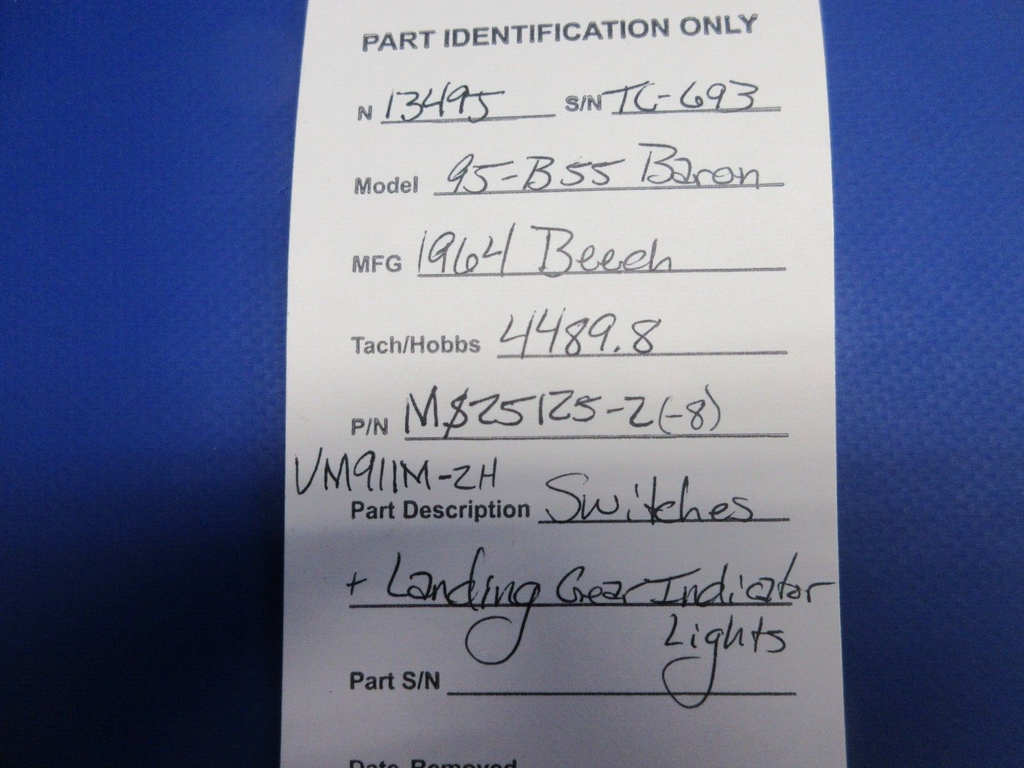 PART IDENTIFICATION ONLY
N 13495 S/N TC-693
Model 95-B55 Baron
MFG 1964 Beech
Tach/Hobbs 4489.8
P/N MS25125-2(-8)
VM911M-2H
Part Description Switches
+ Landing Gear Indicator
Lights
Part S/N
Date Removed